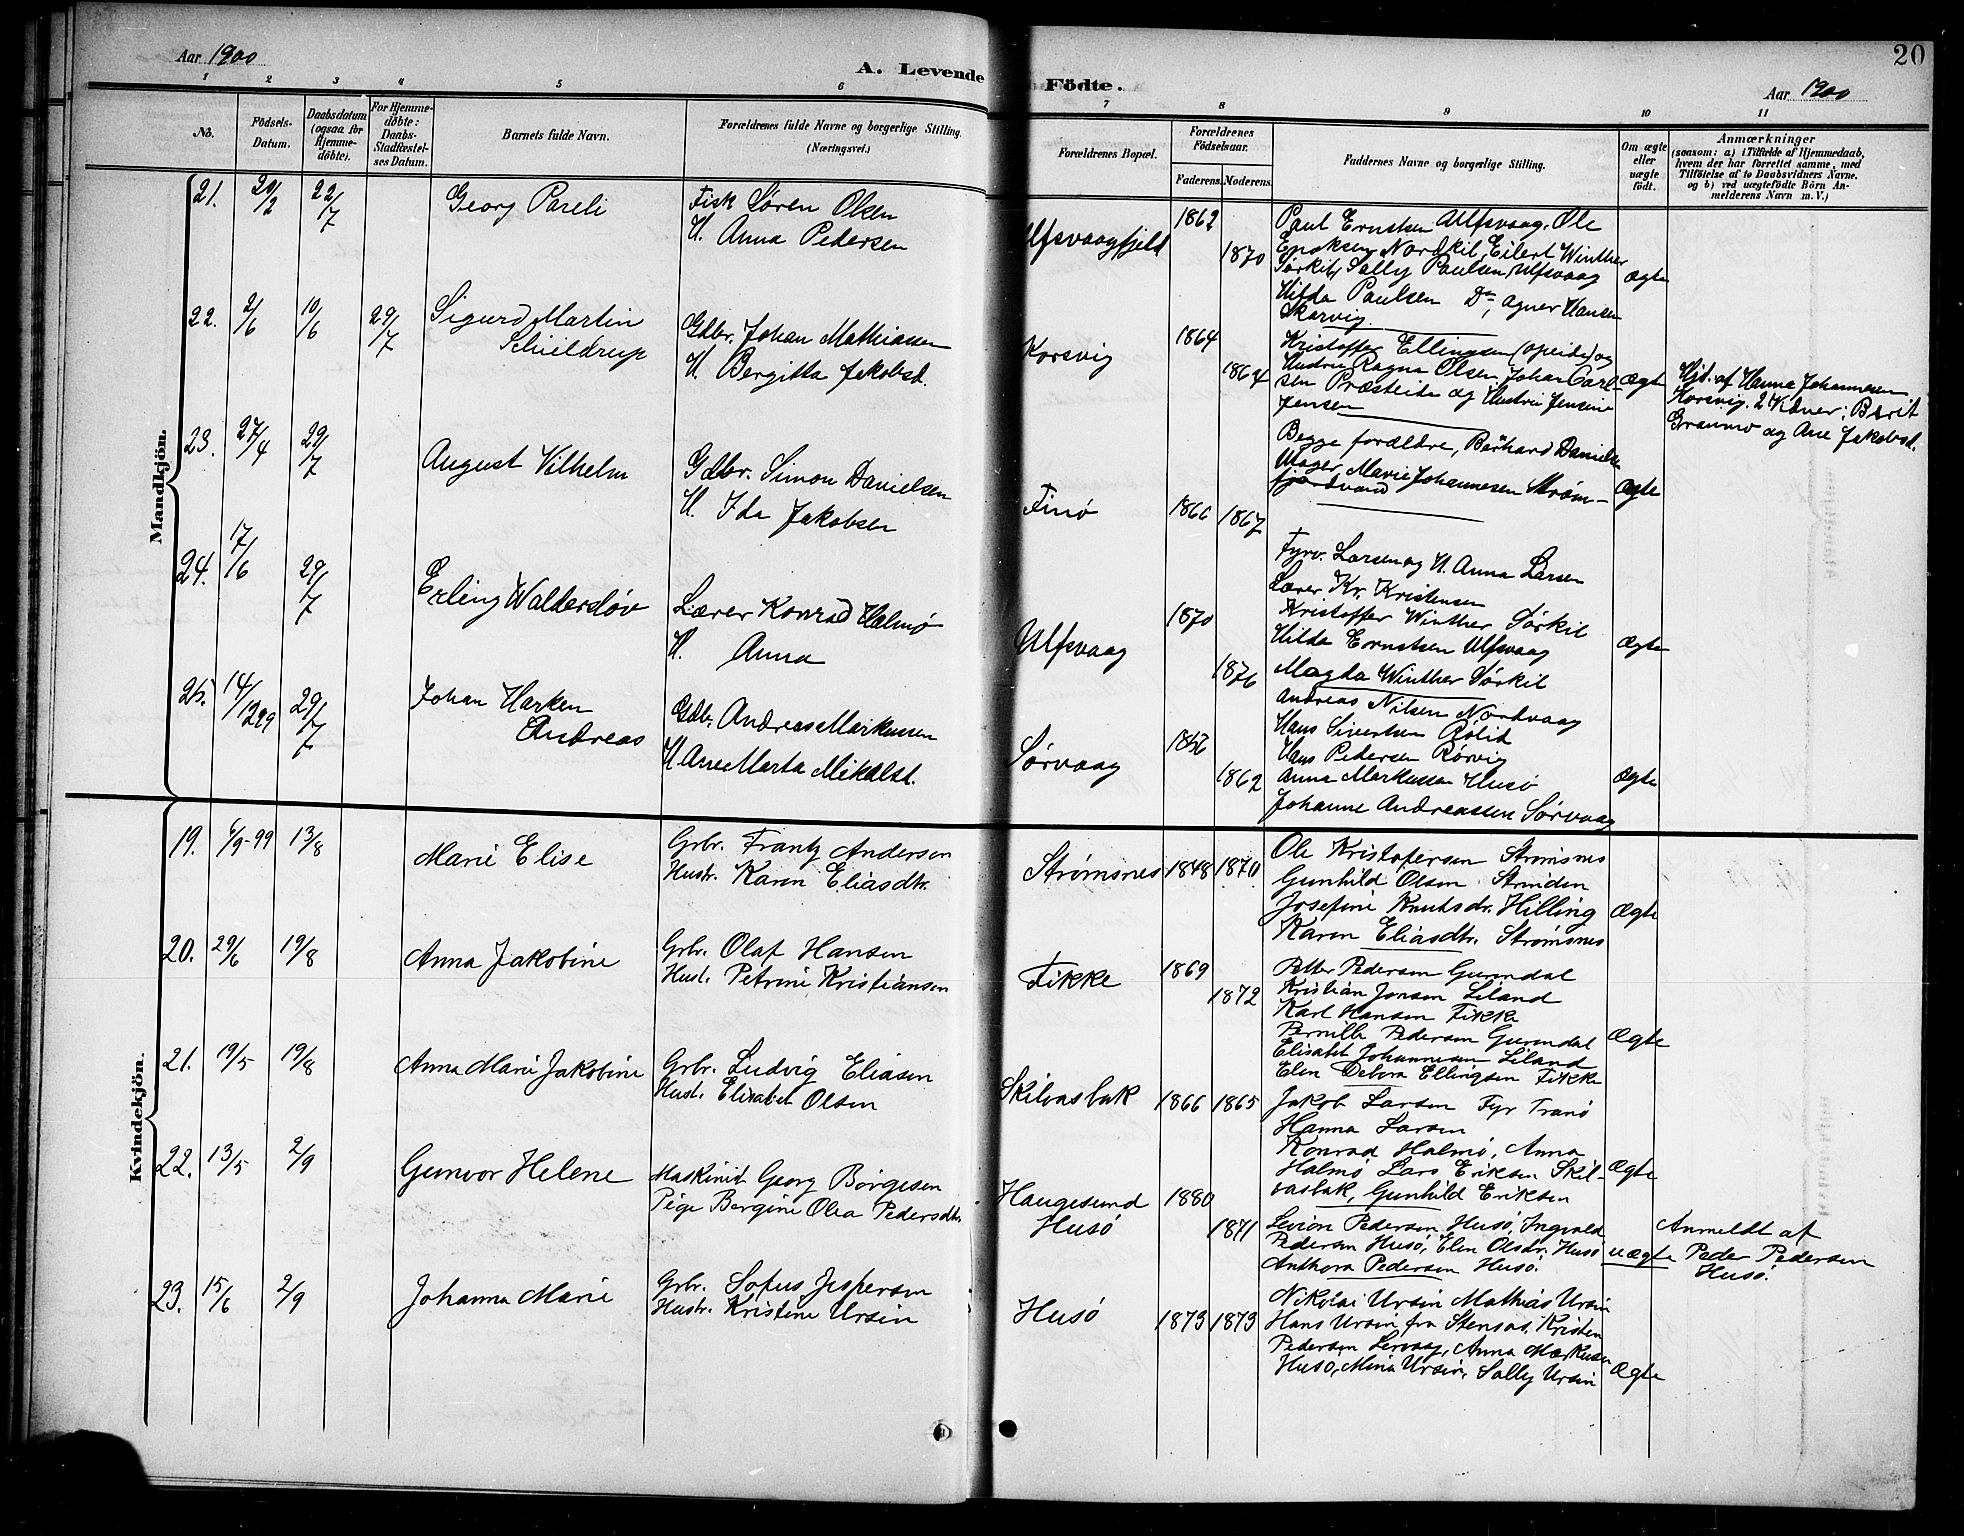 20
Aar 1900
A. Levende Födte.
Aar 1900
1 2 3 4 5 6 7 8 9 10 11
No.
Födsels-
Datum.
Daabsdatum
(ogsaa for
Hjemme-
døbte).
For Hjemme-
døbte:
Daabs-
Stadfæstel-
ses Datum.
Barnets fulde Navn.
Forældrenes fulde Navne og borgerlige Stilling.
(Næringsvei.)
Forældrenes Bopæl.
Forældrenes
Födselsaar.
Faderens. Moderens.
Faddernes Navne og borgerlige Stilling.
Om ægte
eller
uægte
født.
Anmærkninger
(saasom: a) i Tilfælde af Hjemmedaab,
hvem der har forrettet samme, med
Tilföielse af to Daabsvidners Navne.
og b) ved uægtefødte Börn An-
melderens Navn m. V.)
Mandkjön.
21. 20/2 22/7 Georg Pareli
Fisk Søren Olsen
H. Anna Pedersen
Ulfsvaagfjeld 1862 1870
Paul Ernstsen Ulfsvaag, Ole
Enoksen Nordkil, Eilert Winther
Sørkil, Sally Paulsen, Ulfsvaag
Hilda Paulsen Do, Agner Hansen
Skarvig
Ægte
22. 2/6 10/6 29/7 Sigurd Martin
Schieldrup
Gdbr. Johan Mathiassen
H. Bergitta Jakobsd.
Korsvig 1864 1864
Kristoffer Ellingsen (opeide) og
Hustru Ragna Olsen, Johan Carl-
sen Præsteide og Hustru Jensine
Jensen
Ægte
Hjd. af Hanna Johannesen
Korsvig. 2 Vidner: Berit
Granmo og Ane Jakobsd.
23. 27/4 29/7 August Vilhelm
Gdbr. Simon Danielsen
H. Ida Jakobsen
Finø 1866 1867
Begge forældre, Barhard Daniels
Marie Johannesen Strøm-
fjordvand
Ægte
24. 17/6 29/7 Erling Walderslöv
Lærer Konrad Halmø
H. Anna
Ulfsvaag 1870 1876
Fyrv. Larsen og H. Anna Larsen
Lærer Kr. Kristensen
Kristoffer Winther Sørkil
Hilda Ernstsen Ulfsvaag
Magda Winther Sørkil
Ægte
25. 14/12 99 29/7 Johan Harken
Andreas
Gdb. Andreas Markussen
H. Ane Marta Mikalsd.
Sørvaag 1862
Andreas Nilsen Nordvaag
Hans Sivertsen Rølid
Hans Pedersen Rørvig
Anna Markussen Husø
Johanne Andreassen Sørvaag
Ægte
Kvindekjön.
19. 6/9-99 13/8 Marie Elise
Grbr. Frantz Andersen
Hustr. Karen Eliasdtr.
Strømsnes 1848 1870
Ole Kristofersen Strømsnes
Gunhild Olsen Strinden
Josefine Knutsdr. Hilling
Karen Eliasdtr. Strømsnes
Ægte
20. 29/6 19/8 Anna Jakobine
Grbr. Olaf Hansen
Hust. Petrine Kristiansen
Fikke 1869 1872
Petter Pedersen Gurendal
Kristian Jonsen Liland
Karl Hansen Fikke
Pernille Pedersen Gurendal
Elisabet Johannesen Liland
Elen Debora Ellingsen Fikke
Ægte
21. 19/5 19/8 Anna Marie Jakobine
Grbr. Ludvig Eliasen
Hust. Elisabet Olsen
Skilvasbak 1866 1865
Jakob Larsen Fyr Tranø
Hanna Larsen
Konrad Halmø, Anna
Halmø Lars Eriksen Skil-
vasbak, Gunhild Eriksen
Ægte
22. 13/5 2/9 Gunvor Helene
Maskinist Georg Börgesen
Pige Bergine Olea Pedersdtr.
Haugesund
Husø
1880 1871
Levion Pedersen Husø, Ingvald
Pedersen Husø, Elen Olsdr. Husø
Anthora Pedersen Husø.
uægte
Anmeldt af
Peder Pedersen
Husø.
23. 15/6 2/9 Johanna Marie
Grbr. Sofus Jespersen
Hustr. Kristine Ursin
Husø 1873 1873
Nikolai Ursin Mathias Ursin
Hans Ursin fra Stensas, Kristen
Pedersen Lervaag, Anna Markusen
Husø, Mina Ursin, Sally Ursin
Ægte